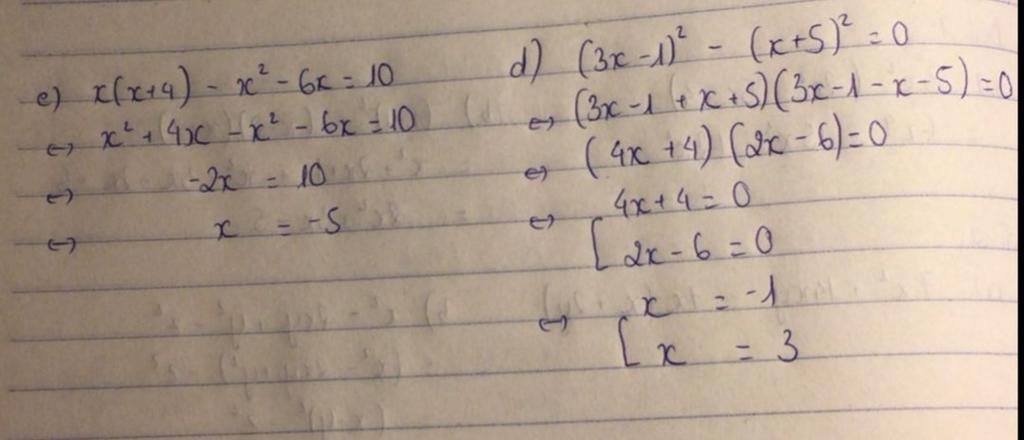 e) x(x+4) - x² - 6x = 10
⇔ x² + 4x - x² - 6x = 10
⇔ -2x = 10
⇔ x = -5
d) (3x-1)² - (x+5)² = 0
⇔ (3x-1+x+5)(3x-1-x-5)=0
⇔ (4x+4)(2x-6)=0
⇔ [ 4x+4=0
2x-6=0
⇔ [ x = -1
x = 3